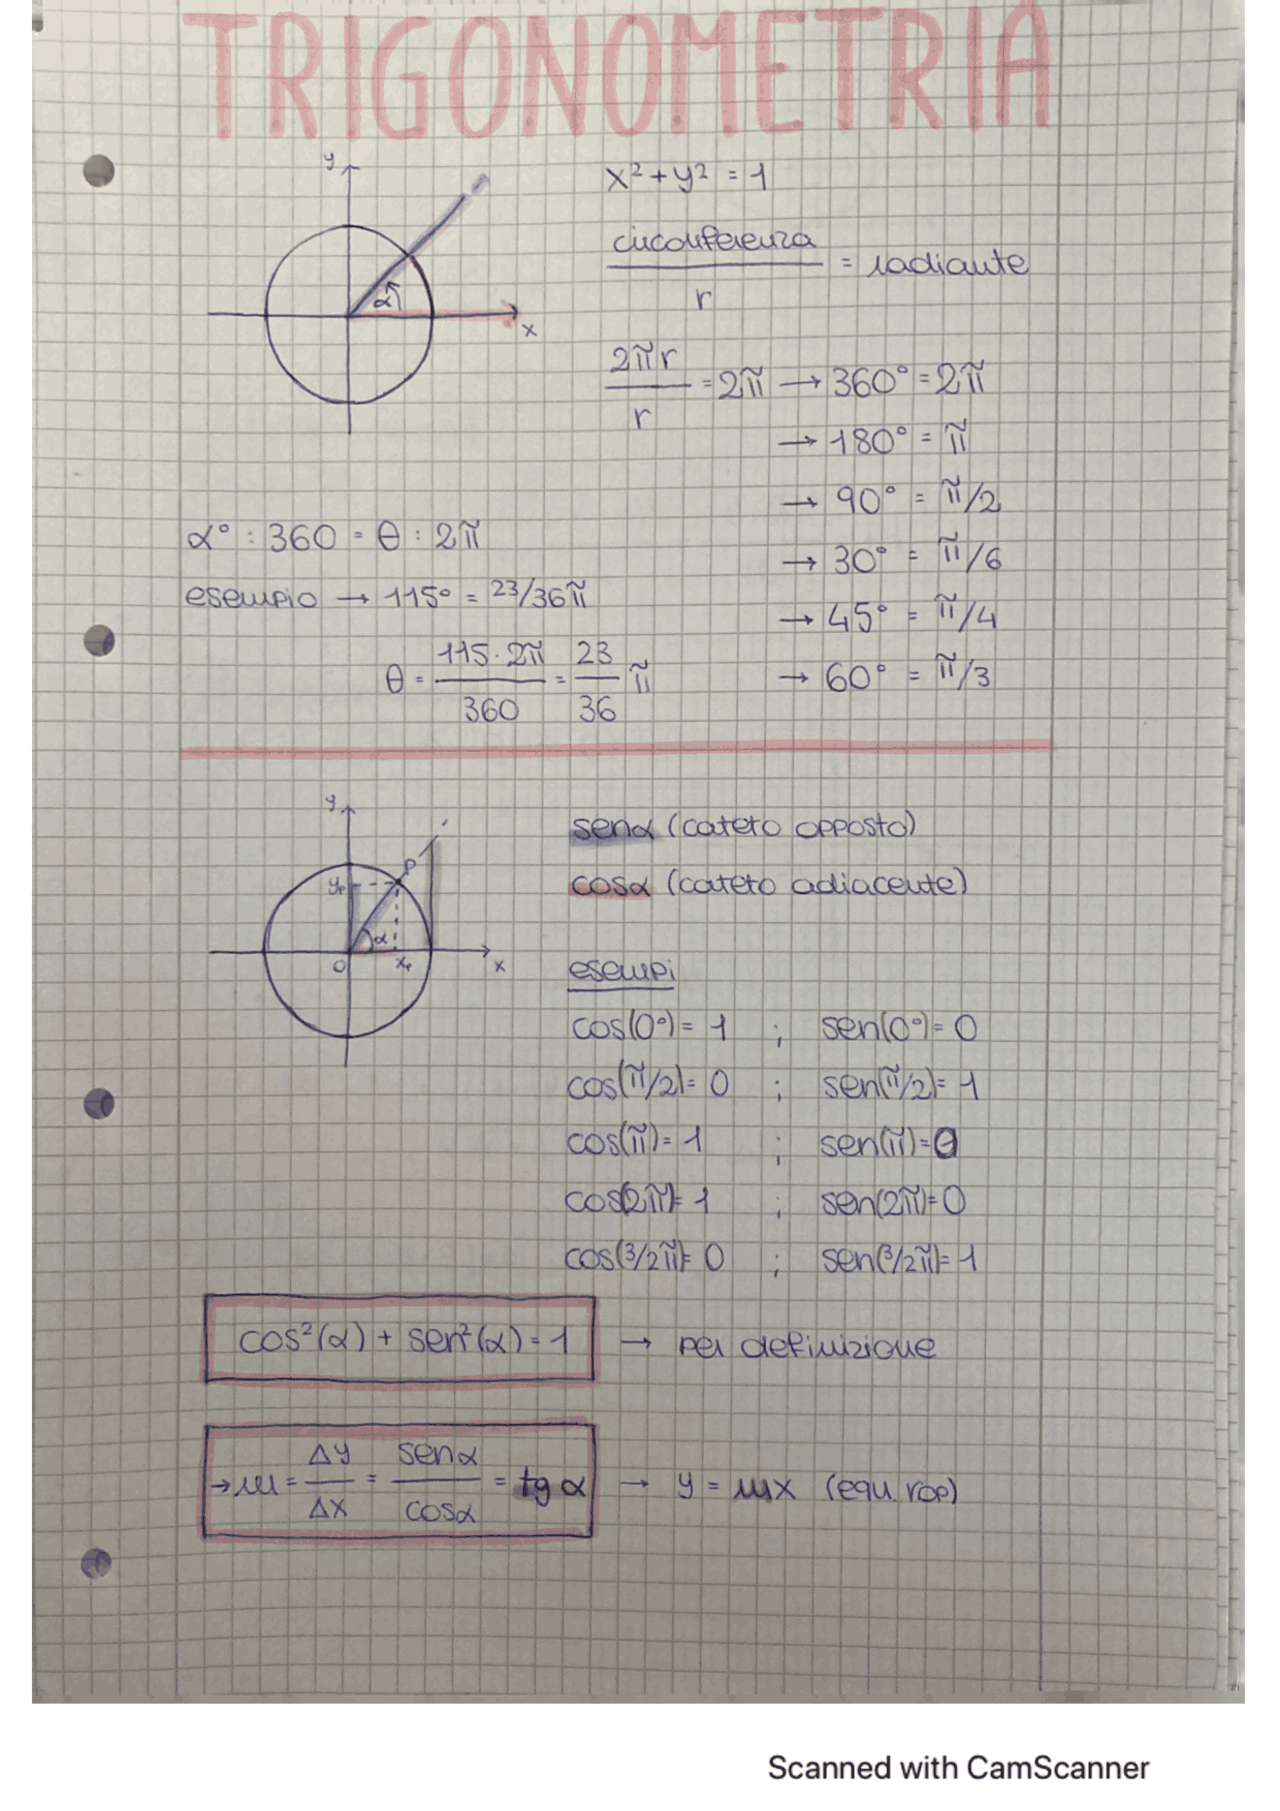 TRIGONOMETRIA
y
x
α
x² + y² = 1
circonferenza / r = radiante
2πr / r = 2π → 360° = 2π
→ 180° = π
→ 90° = π/2
→ 30° = π/6
→ 45° = π/4
→ 60° = π/3
α° : 360 = θ : 2π
esempio → 115° = 23/36π
θ = 115·2π / 360 = 23 / 36 π
y
P
yₚ
α
O
xₚ
x
senα (cateto opposto)
cosα (cateto adiacente)
esempi
cos(0°) = 1 ; sen(0°) = 0
cos(π/2) = 0 ; sen(π/2) = 1
cos(π) = 1 ; sen(π) = 0
cos(2π) = 1 ; sen(2π) = 0
cos(3/2π) = 0 ; sen(3/2π) = 1
cos²(α) + sen²(α) = 1 → per definizione
→ m = Δy / Δx = senα / cosα = tg α → y = mx (equ. rop)
Scanned with CamScanner